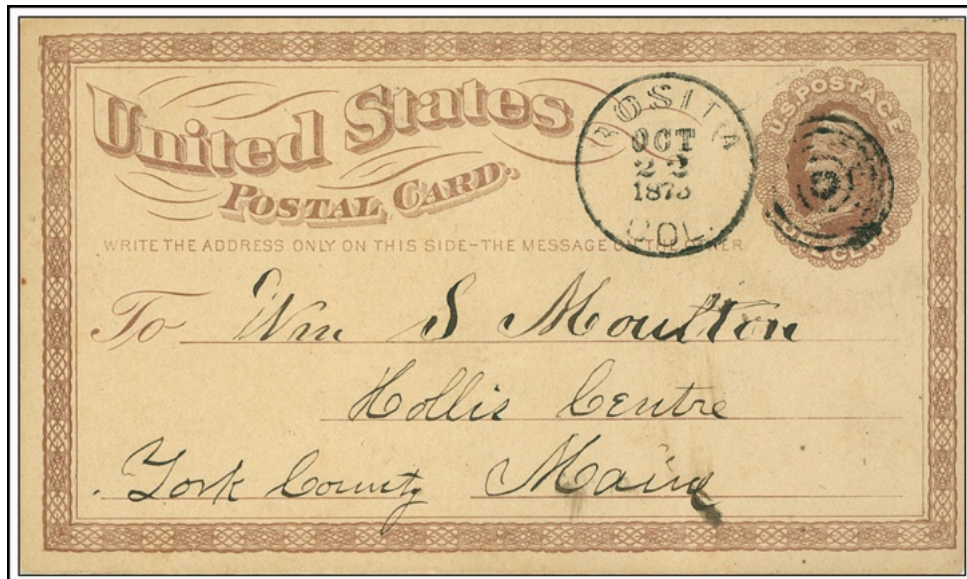 United States
POSTAL CARD.
WRITE THE ADDRESS ONLY ON THIS SIDE-THE MESSAGE ON THE OTHER
ROSITA
OCT
22
1873
COL.
U.S. POSTAGE
ONE CENT
To Wm S Moulton
Hollis Centre
York County Maine